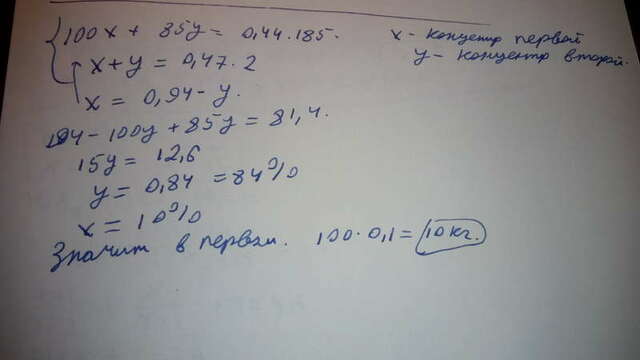 100x + 85y = 0,44·185.
x - концентр первой
y - концентр второй.
x + y = 0,47·2
x = 0,94 - y.
94 - 100y + 85y = 81,4.
15y = 12,6
y = 0,84 = 84%
x = 10%
Значит в первом. 100·0,1 = 10 кг.